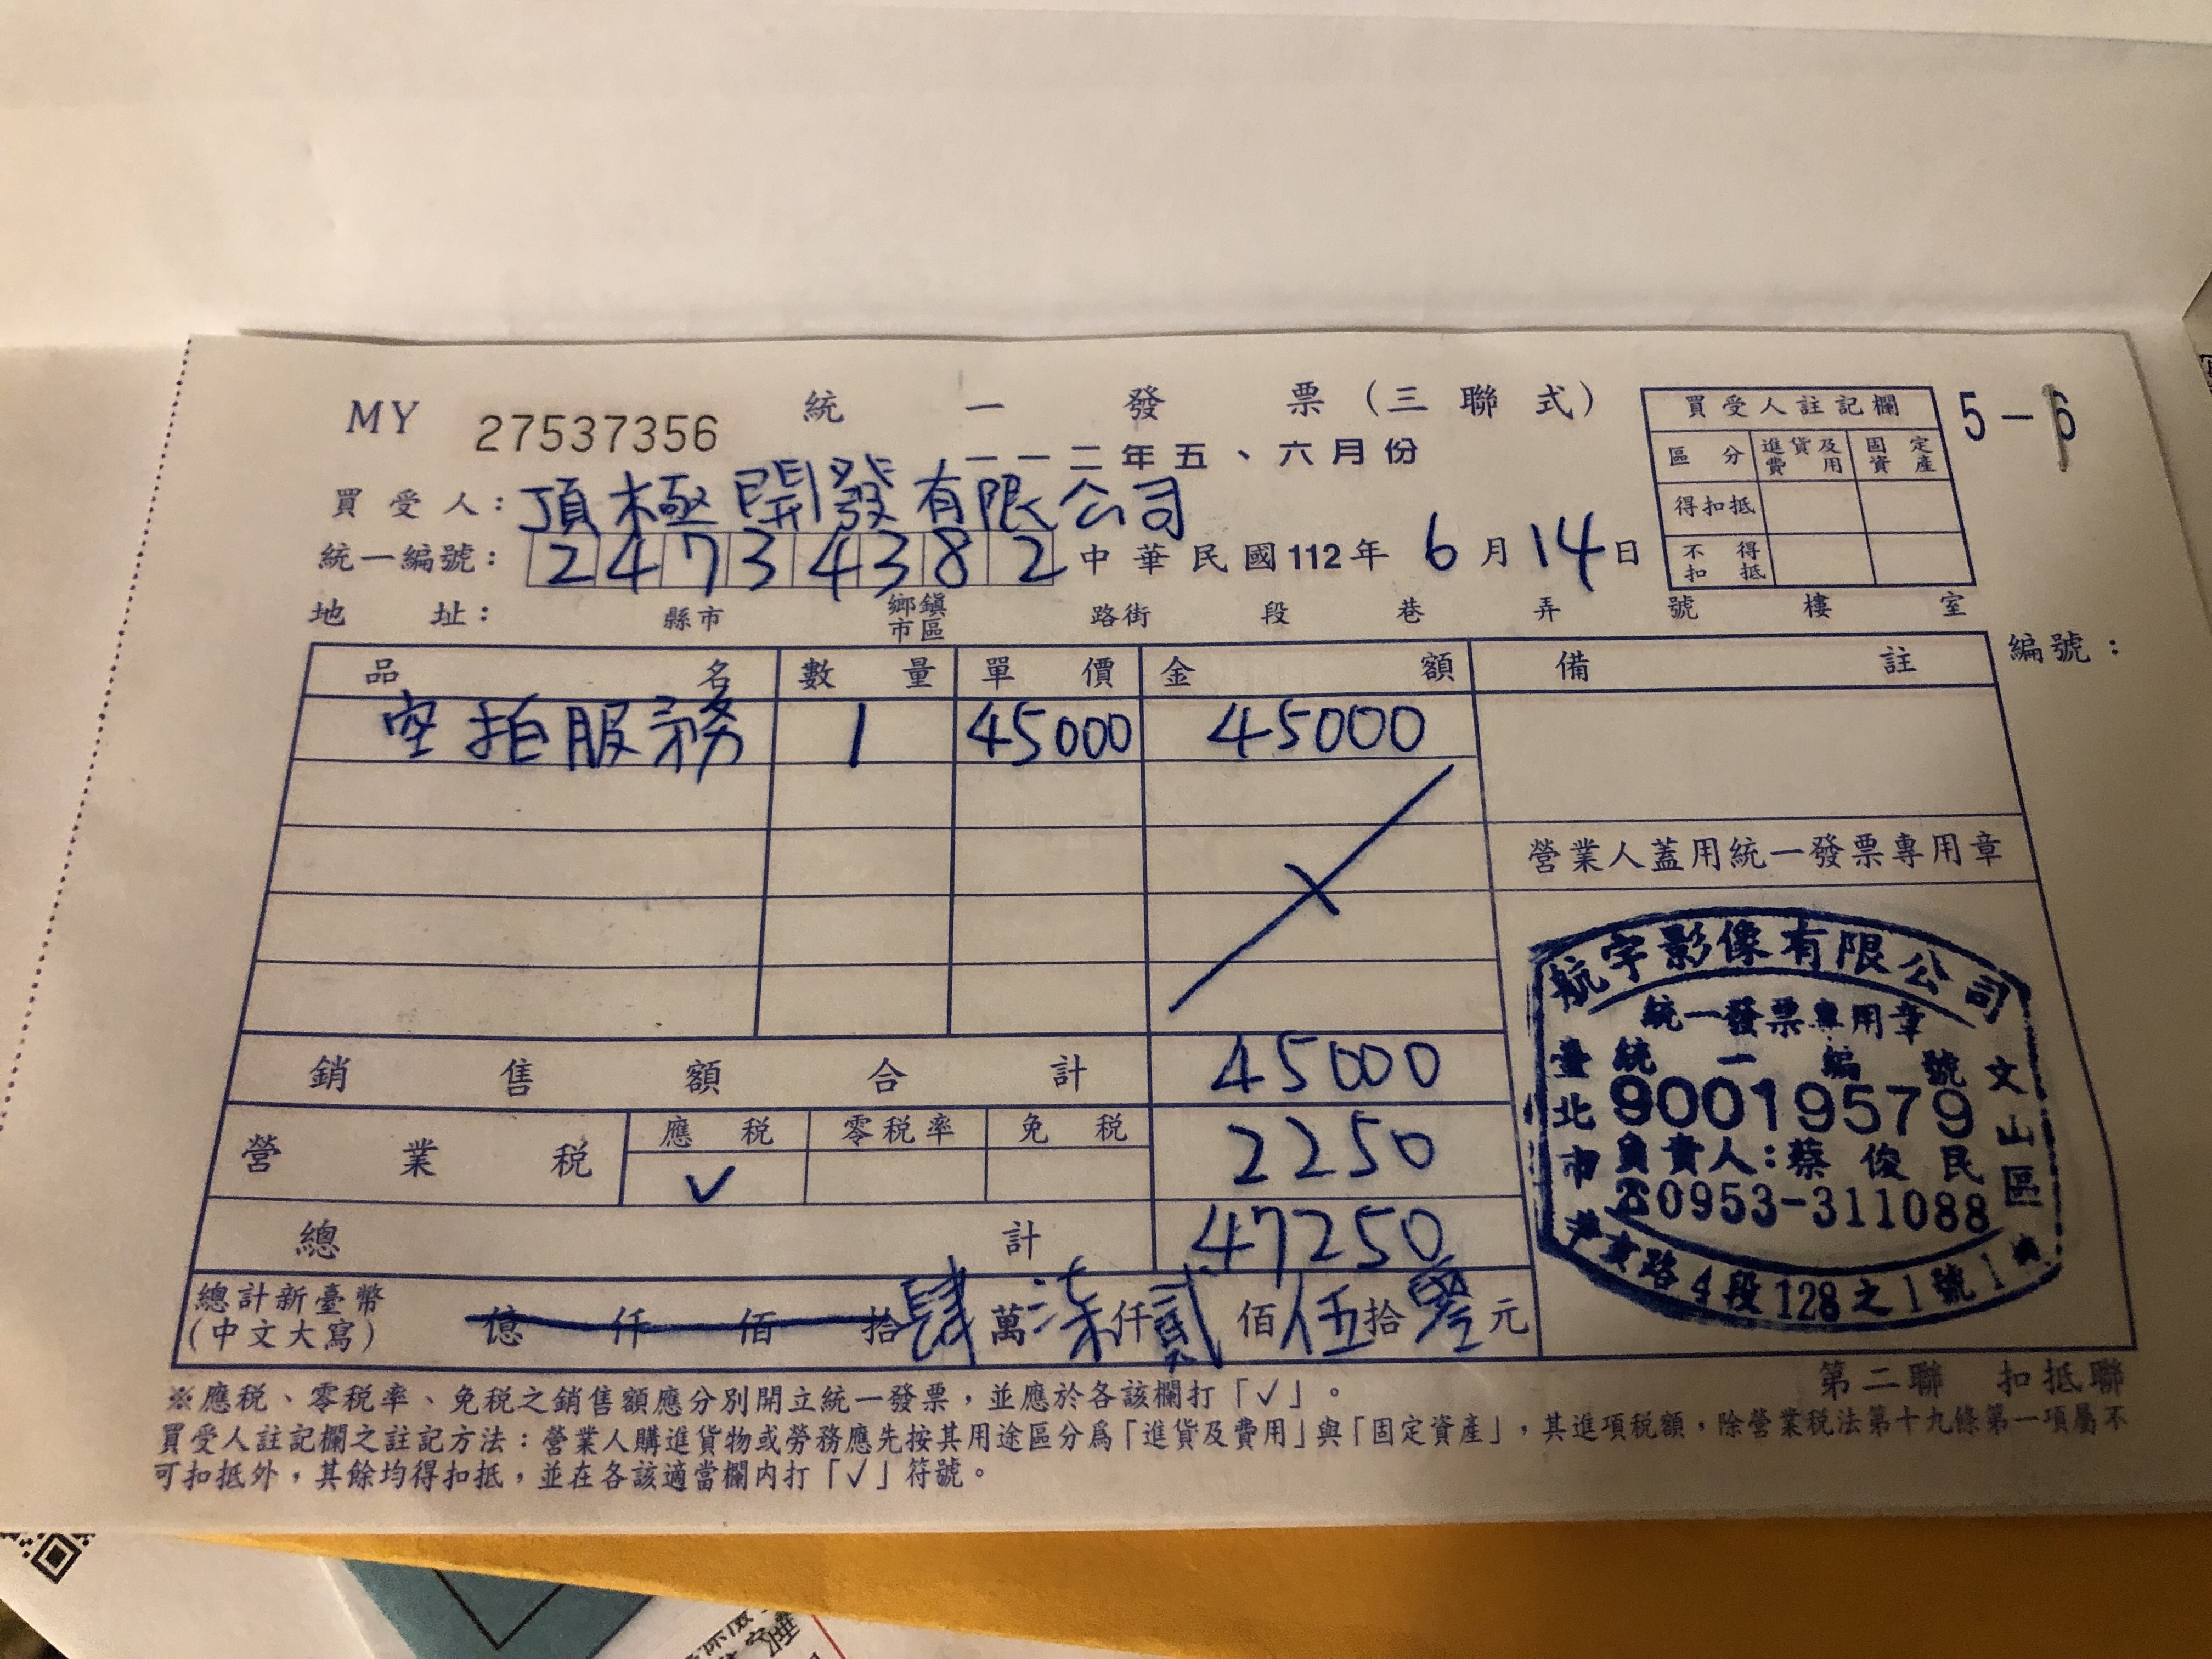 MY 27537356 統一發票(三聯式)
一一二年五、六月份
5-6
買受人註記欄
區分 進貨及費用 固定資產
得扣抵
不得扣抵
買受人: 頂極開發有限公司
統一編號: 24734382 中華民國112年 6月14日
地址: 縣市 鄉鎮市區 路街 段 巷 弄 號 樓 室
編號:
品名 數量 單價 金額 備註
空拍服務 1 45000 45000
營業人蓋用統一發票專用章
銷售額合計 45000
營業稅 應稅 零稅率 免稅 2250
✓
總計 47250
總計新臺幣(中文大寫) 億 仟 佰 拾肆萬柒仟貳佰伍拾零元
航宇影像有限公司
統一發票專用章
統一編號
90019579
負責人:蔡俊民
☎0953-311088
臺北市
文山區
路4段128之1號1
第二聯 扣抵聯
※應稅、零稅率、免稅之銷售額應分別開立統一發票,並應於各該欄打「✓」。
買受人註記欄之註記方法:營業人購進貨物或勞務應先按其用途區分為「進貨及費用」與「固定資產」,其進項稅額,除營業稅法第十九條第一項屬不
可扣抵外,其餘均得扣抵,並在各該適當欄內打「✓」符號。